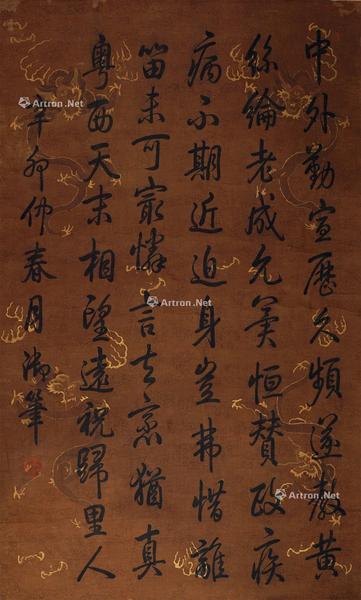 中外勤宣歷久頻遂教黃
絲綸老成允冀恒贊政疾
病不期近迫身豈弗惜離
留未可最憐言去意猶真
粵西天末相望遠祝歸里人
辛卯仲春月御筆
Artron.Net
Artron.Net
Artron.Net
Artron.Net
Artron.Net